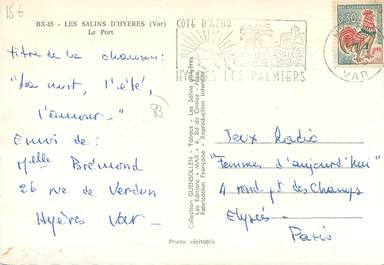 186
BX-15 - LES SALINS D'HYERES (Var)
Le Port
CÔTE D'AZUR
HYÈRES LES PALMIERS
VAR
0,30
titre de la chanson:
"La nuit, l'été,
l'amour-"
93
Envoi de:
Melle Brémond
26 rue de Verdun
Hyères Var-
Collection GUENSOLLEN - Tabacs - Les Salins d'Hyères
Les Editions "MAR"
Fabrication Française - Reproduction interdite
Jeux Radio
"Femmes d'aujourd'hui"
4 rond pt des Champs
Elysés-
Paris
Photo véritable